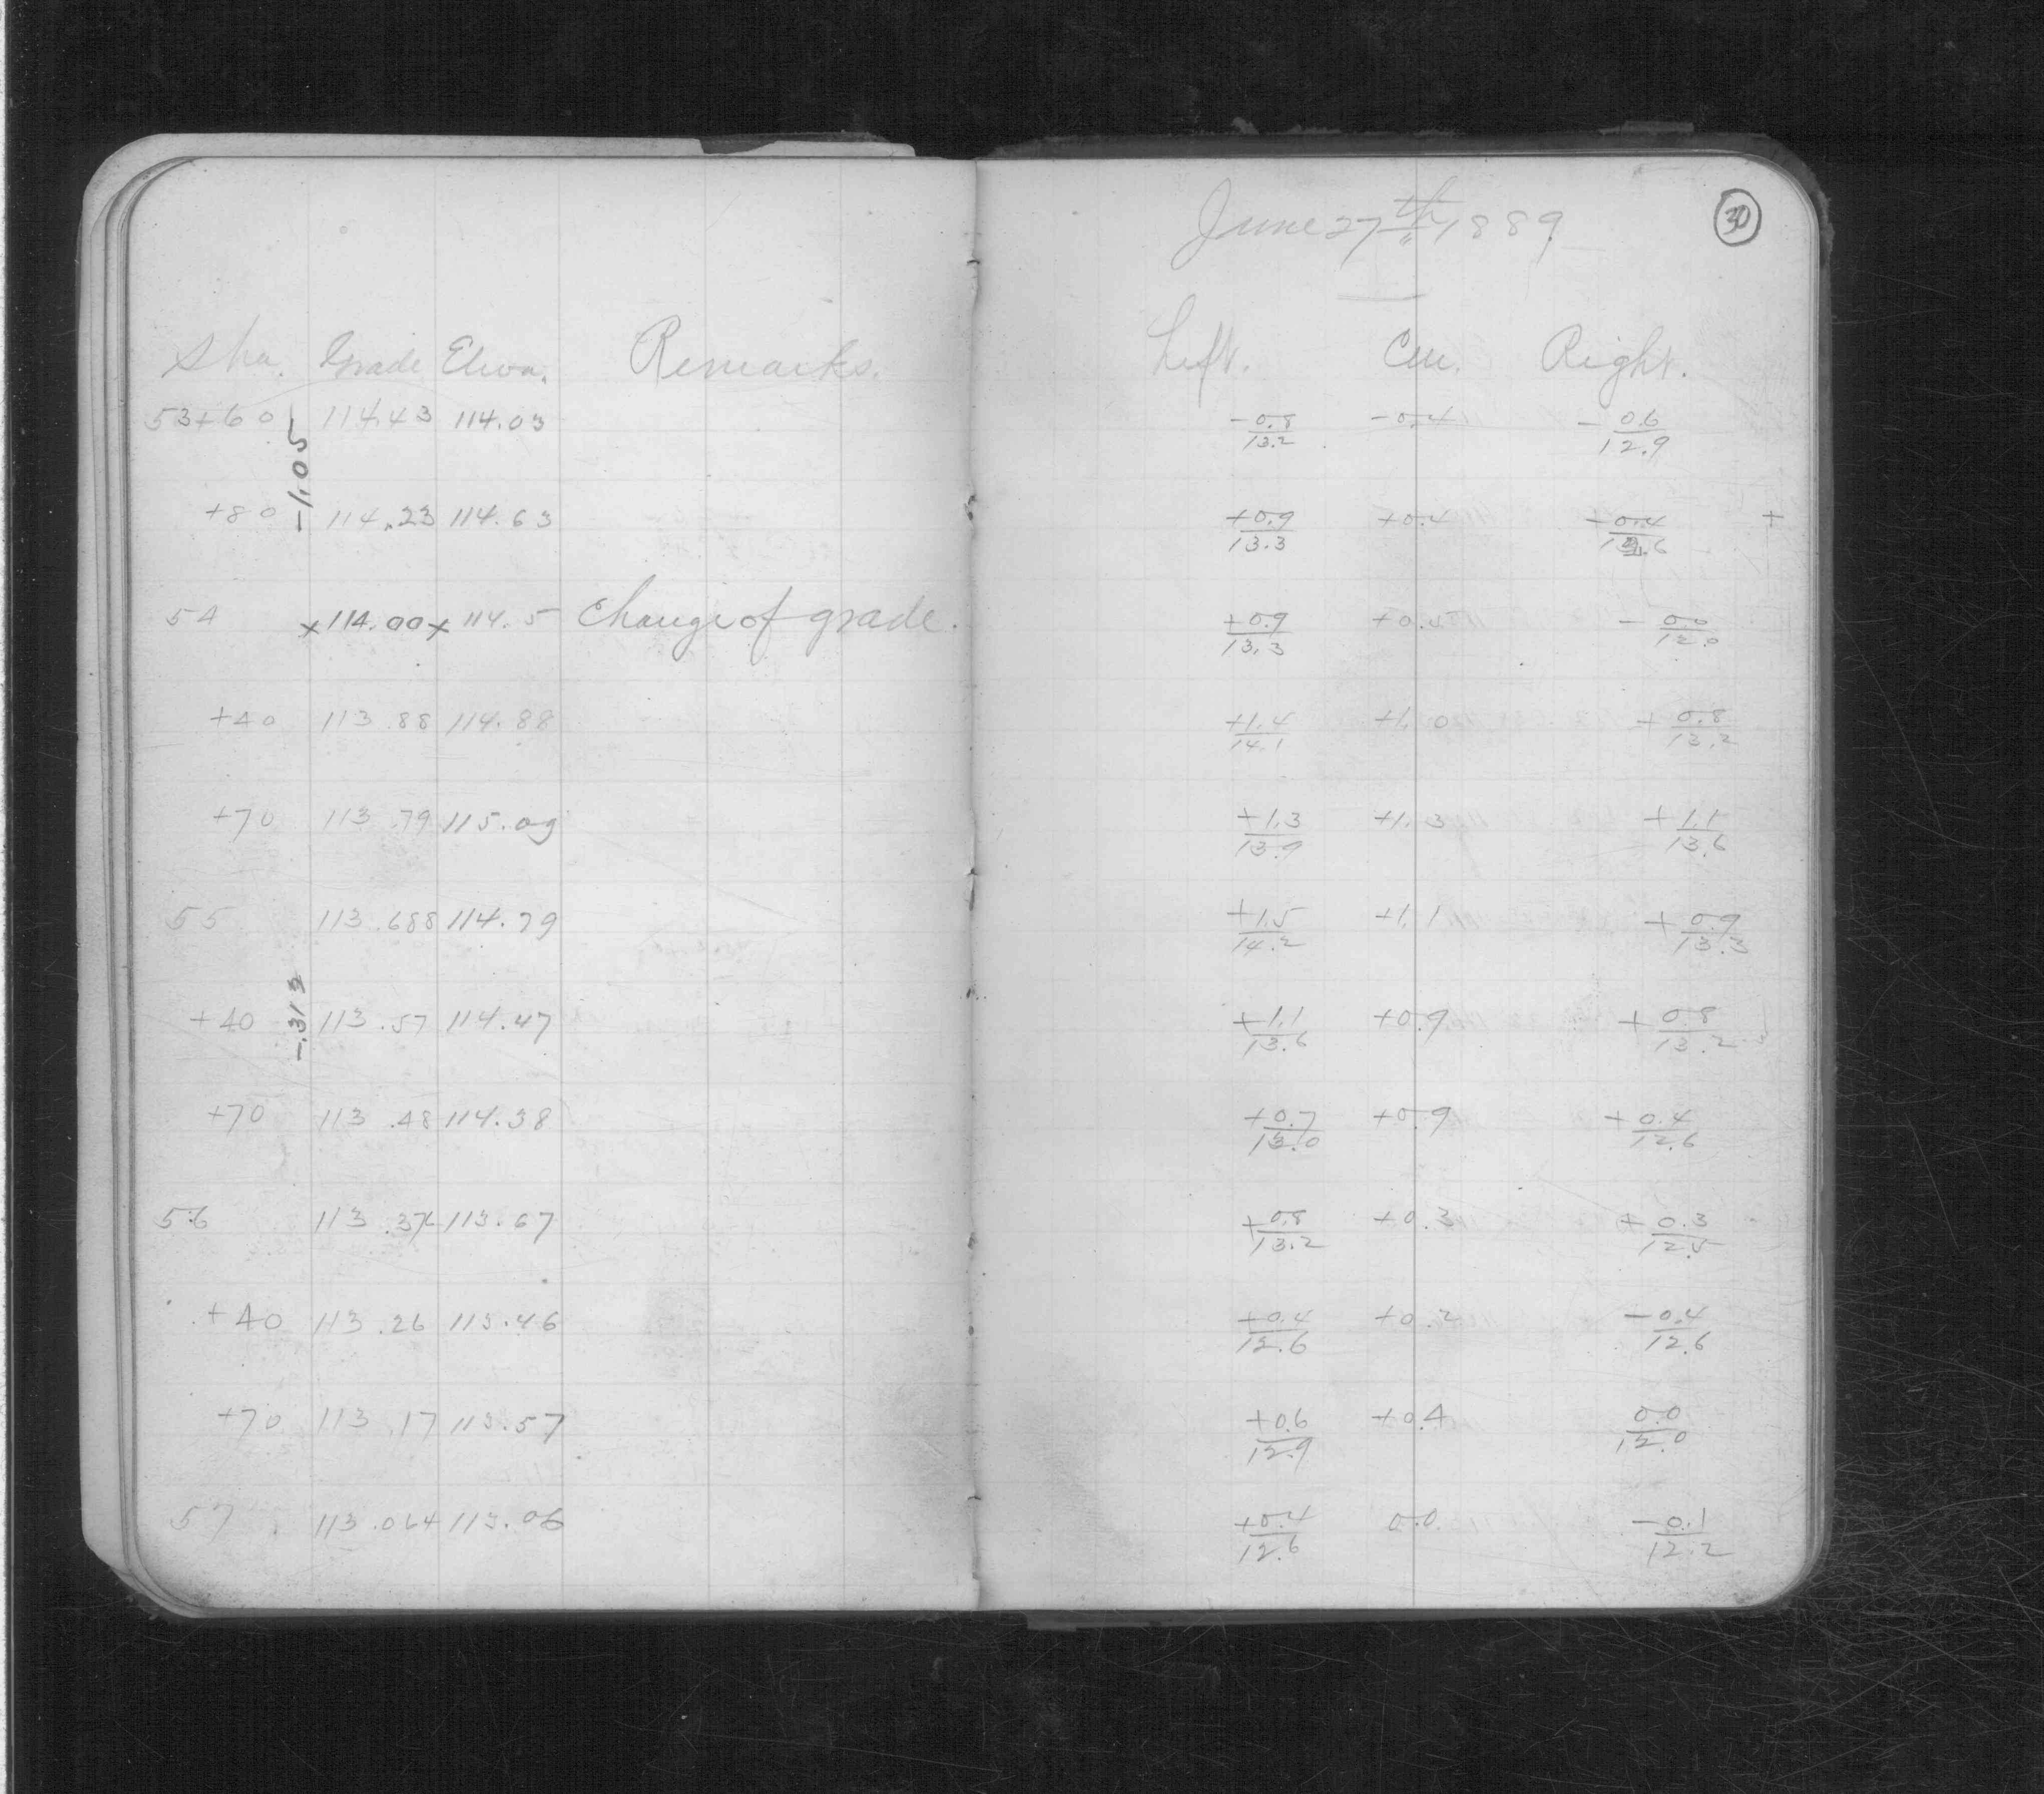 June 27th 1889
30
Sta. Grade Eleva. Remarks. Left. Cen. Right.
53+60 114.43 114.03 -0.8/13.2 -0.4 -0.6/12.9
-1.05
+80 114.23 114.63 +0.9/13.3 +0.4 +0.4/12.6 +
54 x114.00 x 114.5 Change of grade. +0.9/13.3 +0.5 -0.0/12.0
+40 113.88 114.88 +1.4/14.1 +1.0 +0.8/13.2
+70 113.79 115.09 +1.3/13.9 +1.3 +1.1/13.6
55 113.688 114.79 +1.5/14.2 +1.1 +0.9/13.3
-.313
+40 113.57 114.47 +1.1/13.6 +0.9 +0.8/13.2
+70 113.48 114.38 +0.7/13.0 +0.9 +0.4/12.6
56 113.376 113.67 +0.8/13.2 +0.3 +0.3/12.5
+40 113.26 113.46 +0.4/12.6 +0.2 -0.4/12.6
+70 113.17 113.57 +0.6/12.9 +0.4 0.0/12.0
57 113.064 113.06 +0.4/12.6 0.0 -0.1/12.2